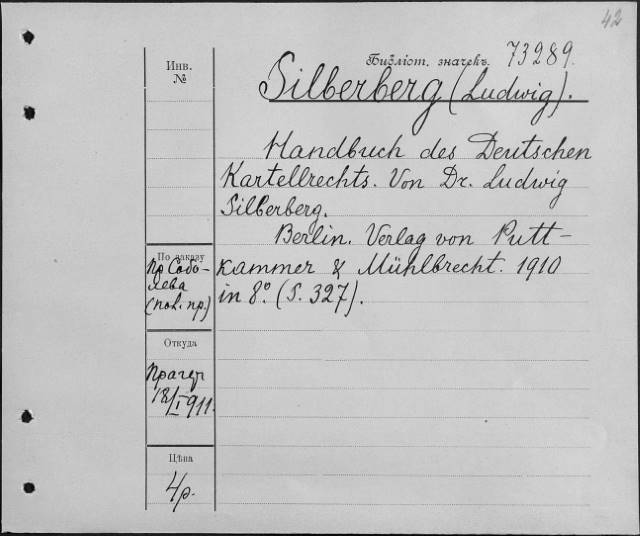 42
Библіот. значекъ 73289.
Silberberg (Ludwig).
Инв.
№
Handbuch des Deutschen
Kartellrechts. Von Dr. Ludwig
Silberberg.
Berlin. Verlag von Putt-
kammer & Mühlbrecht. 1910
in 8º. (S. 327).
По заказу
Пр Собо-
лева
(пол. пр.)
Откуда
Прагеръ
18/I 911.
Цѣна
4р.